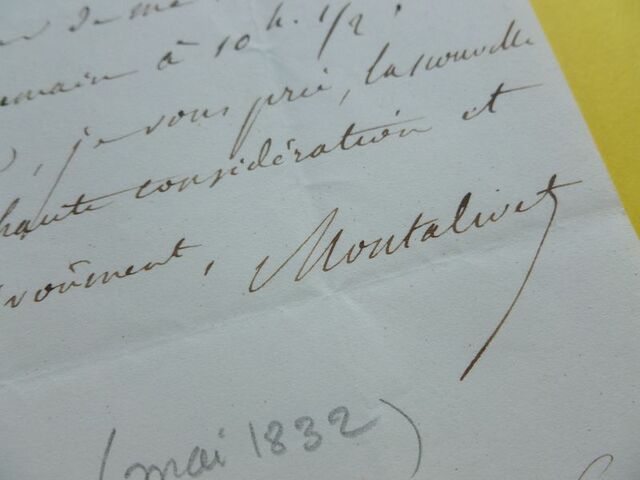 de me
demain à 10 h. 1/2.
, je vous prie, la nouvelle
haute considération et
dévoûment,
Montalivet
(mai 1832)